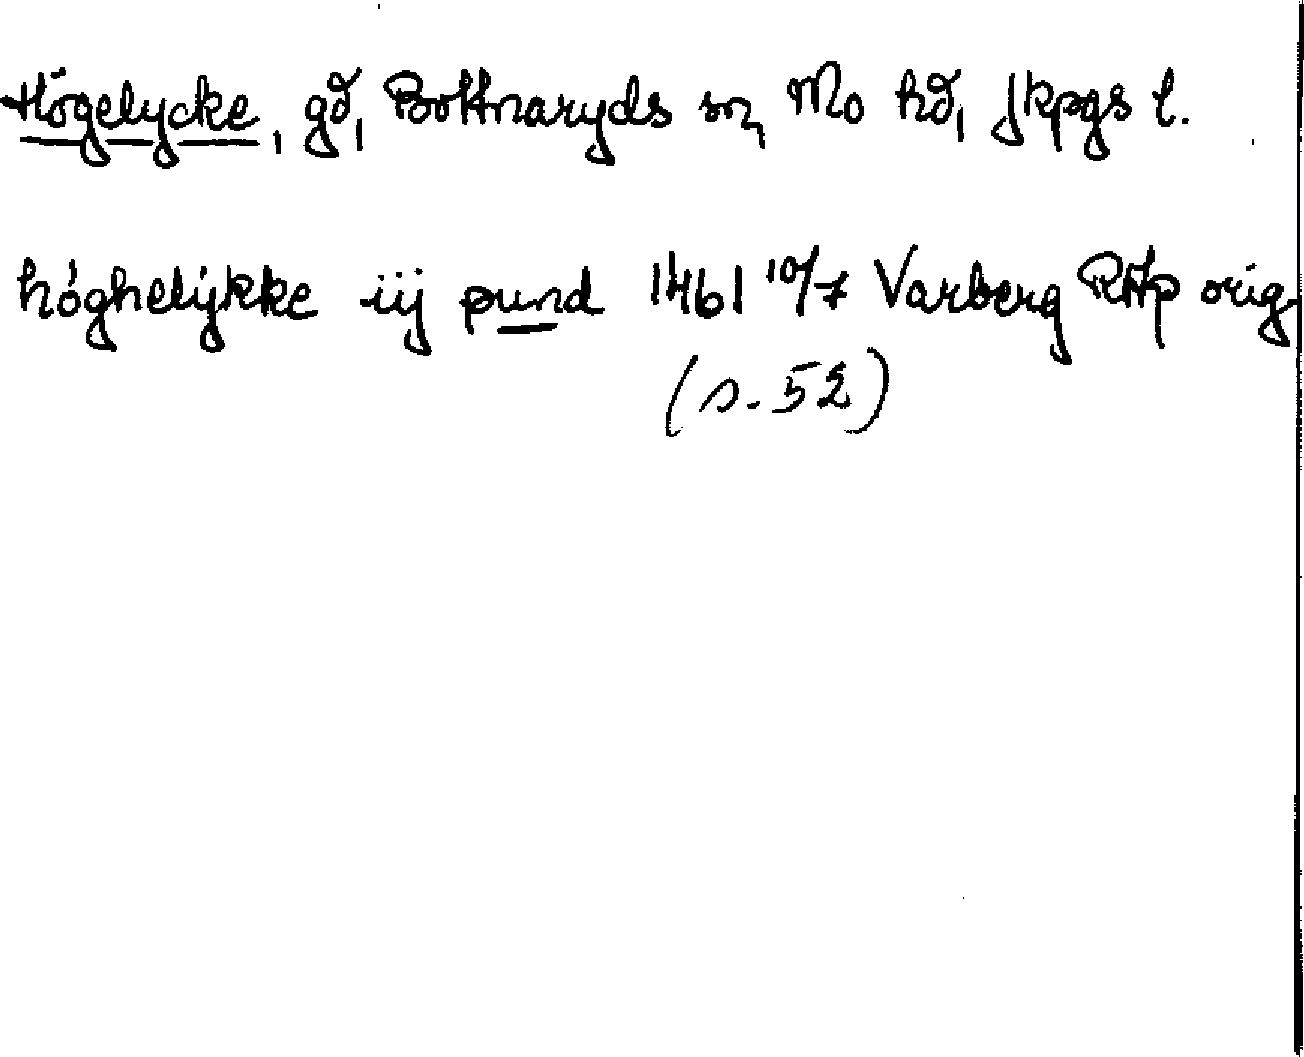 Högelycke, gd, Bottnaryds sn, Mo hd, Jkpgs l.
hóghelÿkke iij pund 1461 10/7 Varberg RAp orig
(s. 52)